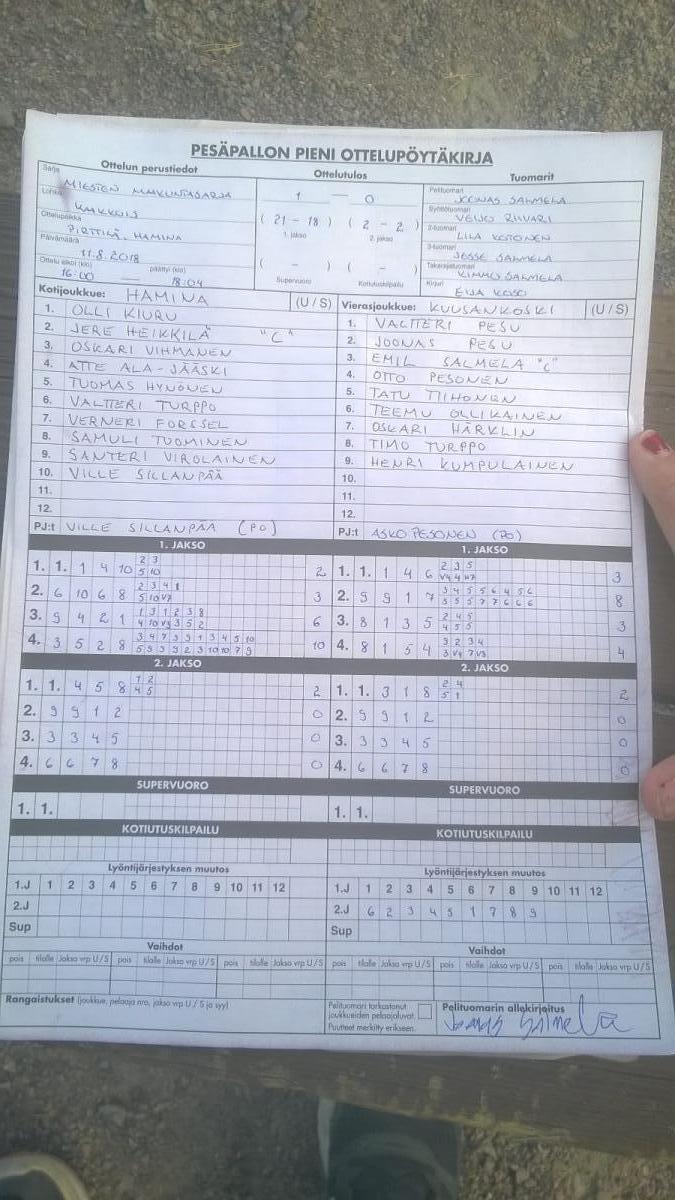 PESÄPALLON PIENI OTTELUPÖYTÄKIRJA
Ottelun perustiedot
Sarja
MIESTEN MAAKUNTASARJA
Lohko
KAAKKOIS
Ottelupaikka
PIRTTILÄ, HAMINA
Päivämäärä
11.8.2018
Ottelu alkoi (klo) päättyi (klo)
16:00 18:04
Ottelutulos
1 — 0
( 21 - 18 ) ( 2 - 2 )
1. jakso 2. jakso
( - ) ( - )
Supervuoro Kotiutuskilpailu
Tuomarit
Pelituomari
JOONAS SALMELA
Syöttötuomari
VEIJO RIIVARI
2-tuomari
3-tuomari
JESSE SALMELA
Takarajatuomari
KIMMO SALMELA
Kirjuri
EIJA
Kotijoukkue: HAMINA (U / S)
1. OLLI KIURU
2. JERE HEIKKILÄ "C"
3. OSKARI VIHMANEN
4. ATTE ALA-JÄÄSKI
5. TUOMAS HYNÖNEN
6. VALTTERI TURPPO
7. VERNERI FORSSEL
8. SAMULI TUOMINEN
9. SANTERI VIROLAINEN
10. VILLE SILLANPÄÄ
11.
12.
PJ:t VILLE SILLANPÄÄ (PO)
Vierasjoukkue: KUUSANKOSKI (U / S)
1. VALTTERI PESU
2. JOONAS PESU
3. EMIL SALMELA "C"
4. OTTO PESONEN
5. TATU TIIHONEN
6. TEEMU OLLIKAINEN
7. OSKARI HÄRKLIN
8. TIMO TURPPO
9. HENRI KUMPULAINEN
10.
11.
12.
PJ:t ASKO PESONEN (PO)
1. JAKSO
1. 1. 1 4 10 2 3 2
5 10
2. 6 10 6 8 2 3 4 1 3
5 10 V7
3. 9 4 2 1 1 3 1 2 3 8 6
4 10 V9 3 5 2
4. 3 5 2 8 3 4 7 9 9 1 3 4 5 10 10
1. JAKSO
1. 1. 1 4 6 2 3 5 3
V4 4 V7
2. 9 9 1 7 3 4 5 5 6 4 5 6 8
5 5 5 7 7 6 6 6
3. 8 1 3 5 2 4 5 3
4 5 5
4. 8 1 5 4 9 2 3 4 4
3 V4 7 V3
2. JAKSO
1. 1. 4 5 8 1 2 2
4 5
2. 9 9 1 2 0
3. 3 3 4 5 0
4. 6 6 7 8 0
2. JAKSO
1. 1. 3 1 8 2 4 2
5 1
2. 9 9 1 2 0
3. 3 3 4 5 0
4. 6 6 7 8 0
SUPERVUORO
1. 1.
SUPERVUORO
1. 1.
KOTIUTUSKILPAILU
KOTIUTUSKILPAILU
Lyöntijärjestyksen muutos
1.J 1 2 3 4 5 6 7 8 9 10 11 12
2.J
Sup
Lyöntijärjestyksen muutos
1.J 1 2 3 4 5 6 7 8 9 10 11 12
2.J 6 2 3 4 5 1 7 8 9
Sup
Vaihdot
pois tilalle Jakso vrp U/S pois tilalle Jakso vrp U/S pois tilalle Jakso vrp U/S
Vaihdot
pois tilalle Jakso vrp U/S pois tilalle Jakso vrp U/S pois tilalle Jakso vrp U/S
Rangaistukset (joukkue, pelaaja nro, jakso vrp U / S ja syy)
Pelituomari tarkastanut
joukkueiden pelaajaluvat.
Puutteet merkitty erikseen.
Pelituomarin allekirjoitus
Joonas Salmela